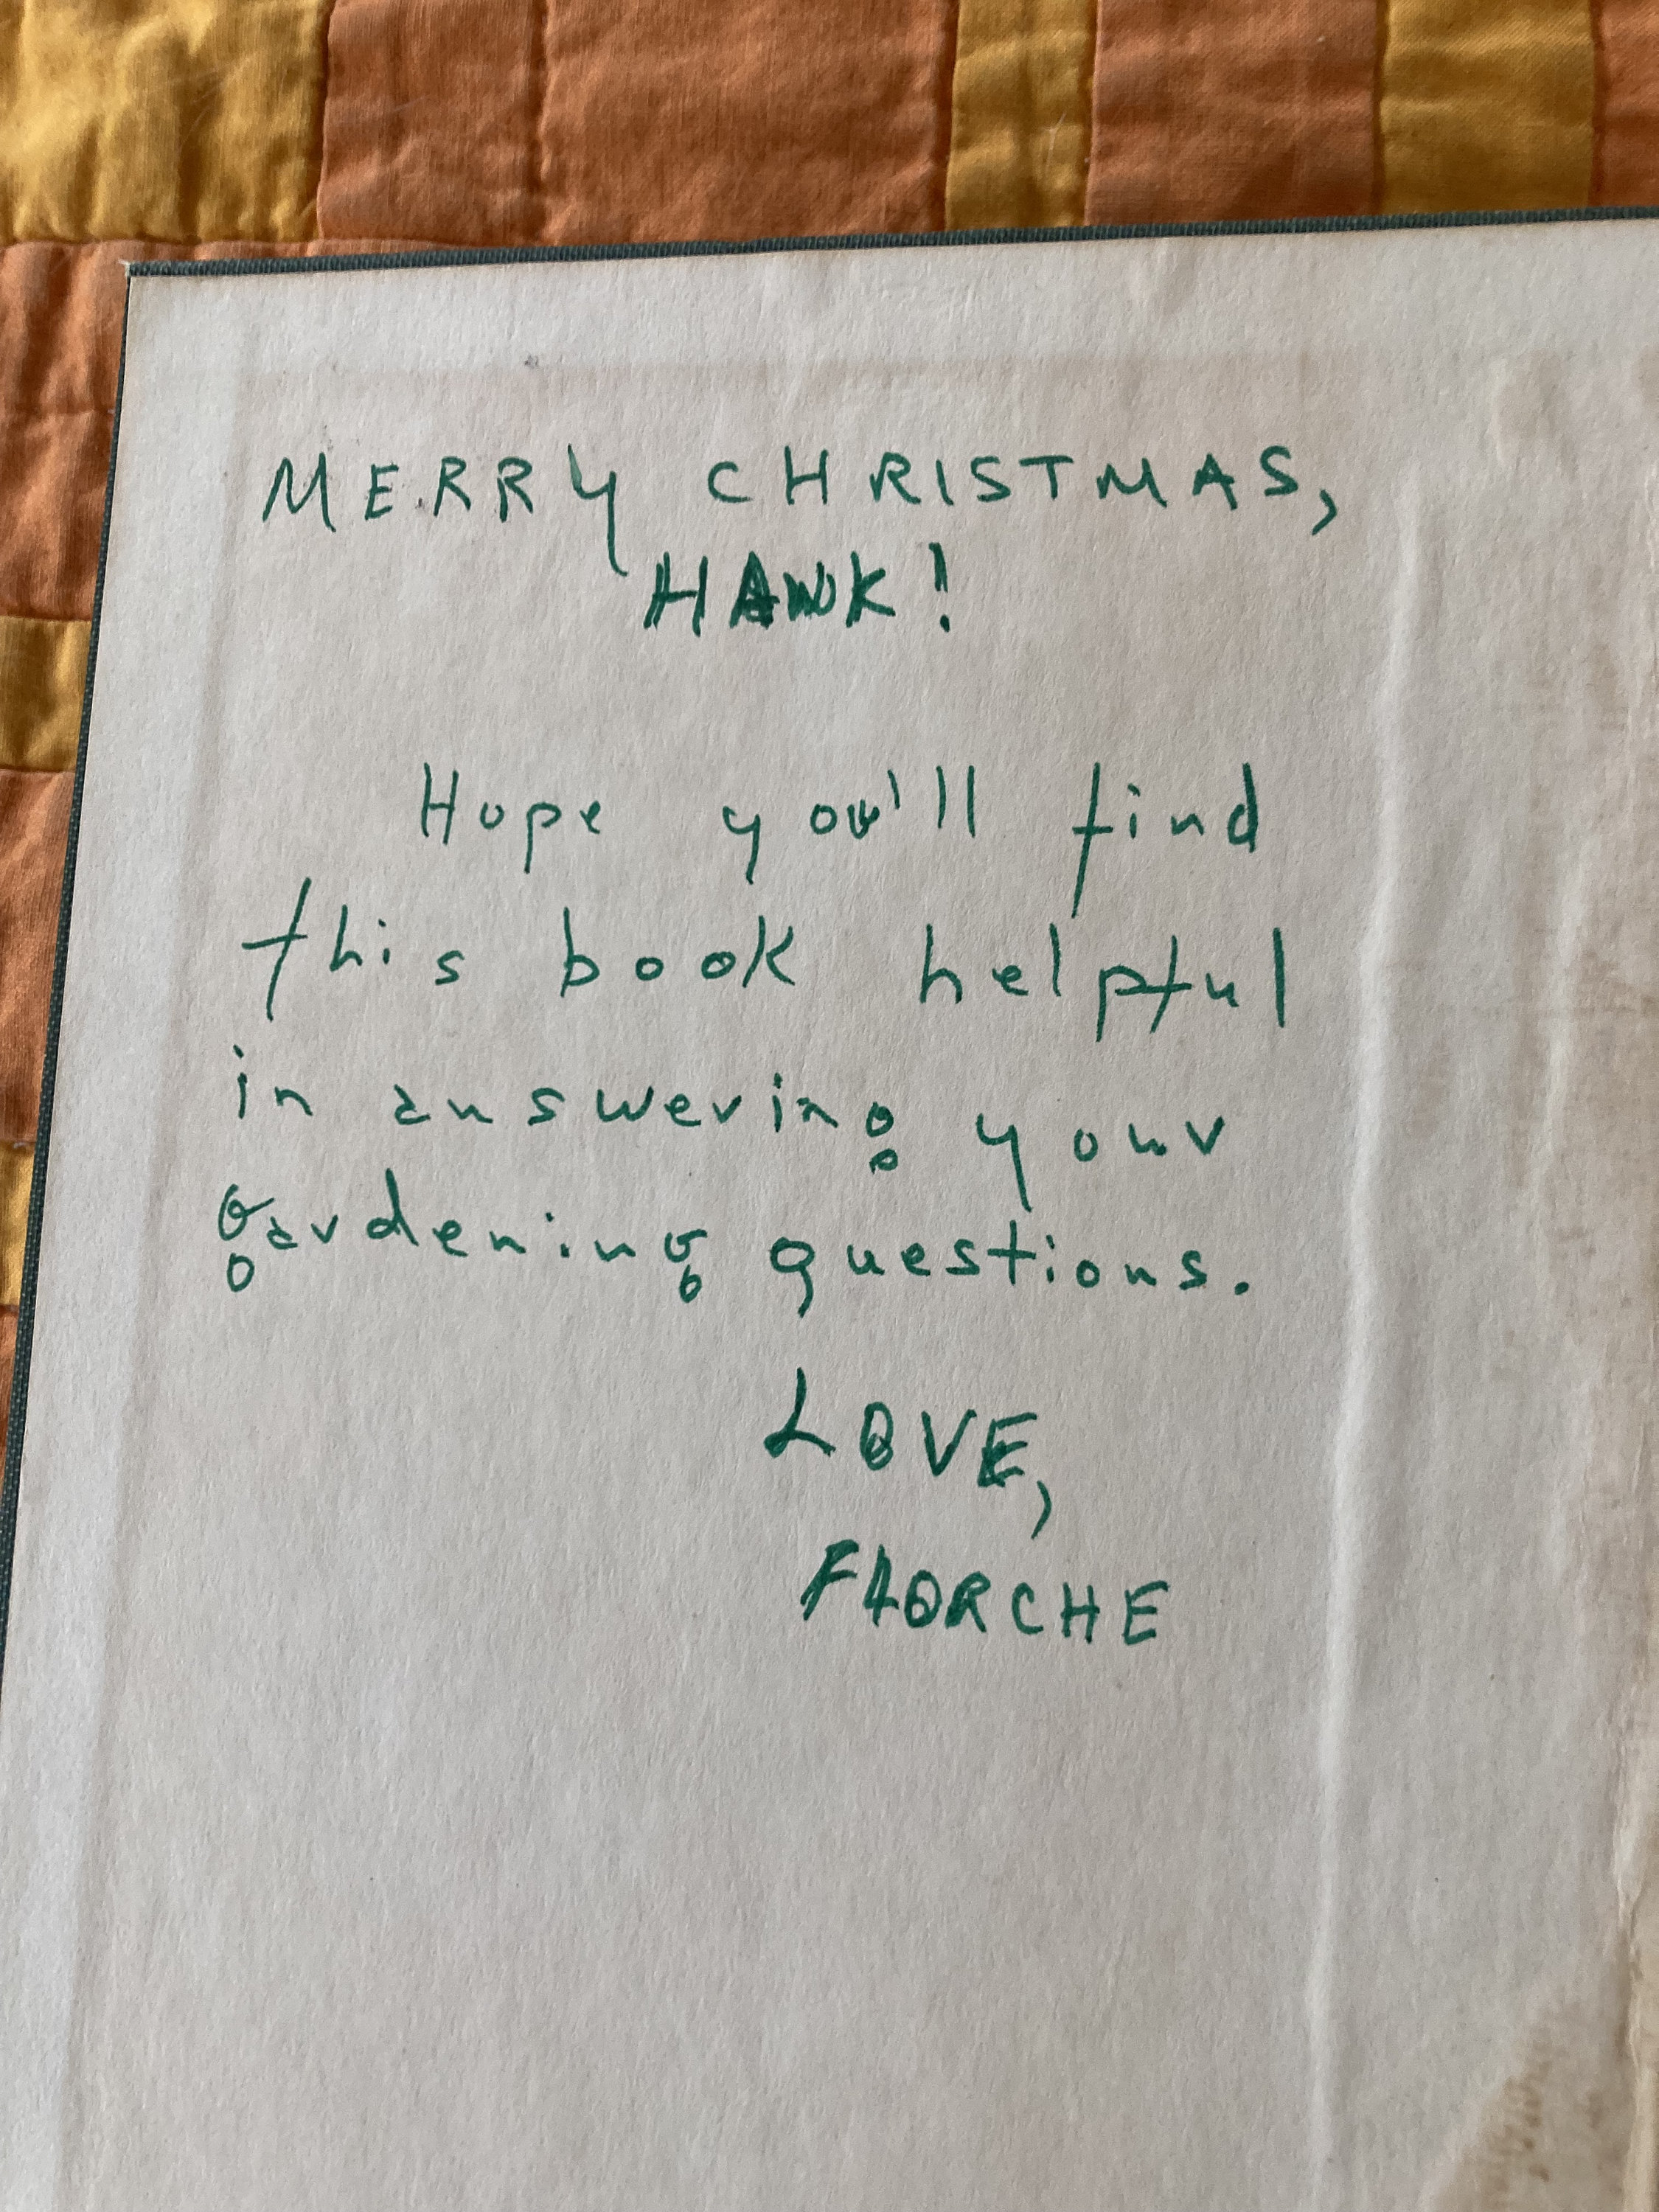 MERRY CHRISTMAS,
HAWK!
Hope you'll find
this book helpful
in answering your
gardening questions.
LOVE,
FLORCHE